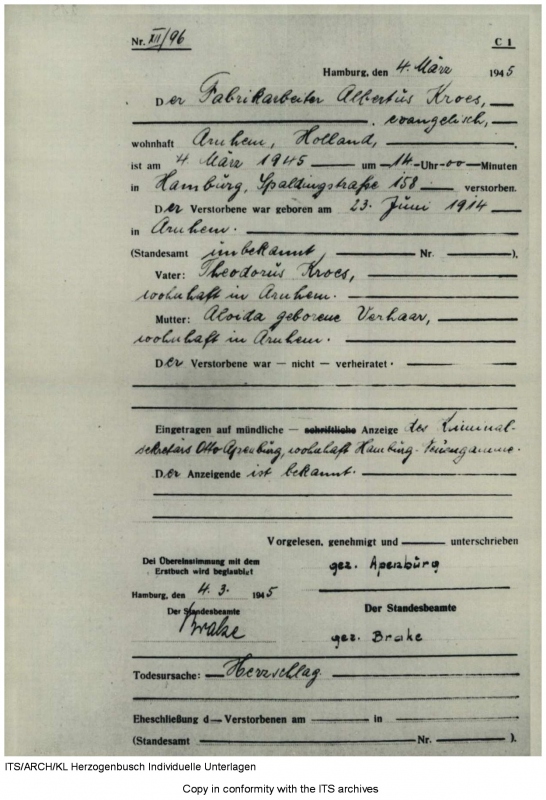 Nr. XII/96 C 1
Hamburg, den 4. März 1945
Der Fabrikarbeiter Albertus Kroes,
evangelisch,
wohnhaft Arnhem, Holland,
ist am 4. März 1945 um 14 Uhr 00 Minuten
in Hamburg, Spaldingstraße 158 verstorben.
Der Verstorbene war geboren am 23. Juni 1914
in Arnhem.
(Standesamt unbekannt Nr. ).
Vater: Theodorus Kroes,
wohnhaft in Arnhem.
Mutter: Aloida geborene Verhaar,
wohnhaft in Arnhem.
Der Verstorbene war — nicht — verheiratet.
Eingetragen auf mündliche — schriftliche Anzeige des Kriminal-
sekretärs Otto Apenburg, wohnhaft Hamburg-Neuengamme.
Der Anzeigende ist bekannt.
Vorgelesen, genehmigt und unterschrieben
Dei Übereinstimmung mit dem
Erstbuch wird beglaubigt
gez. Apenburg
Hamburg, den 4. 3. 1945
Der Standesbeamte
Brake
Der Standesbeamte
gez. Brake
Todesursache: Herzschlag
Eheschließung d Verstorbenen am in
(Standesamt Nr. ).
ITS/ARCH/KL Herzogenbusch Individuelle Unterlagen
Copy in conformity with the ITS archives